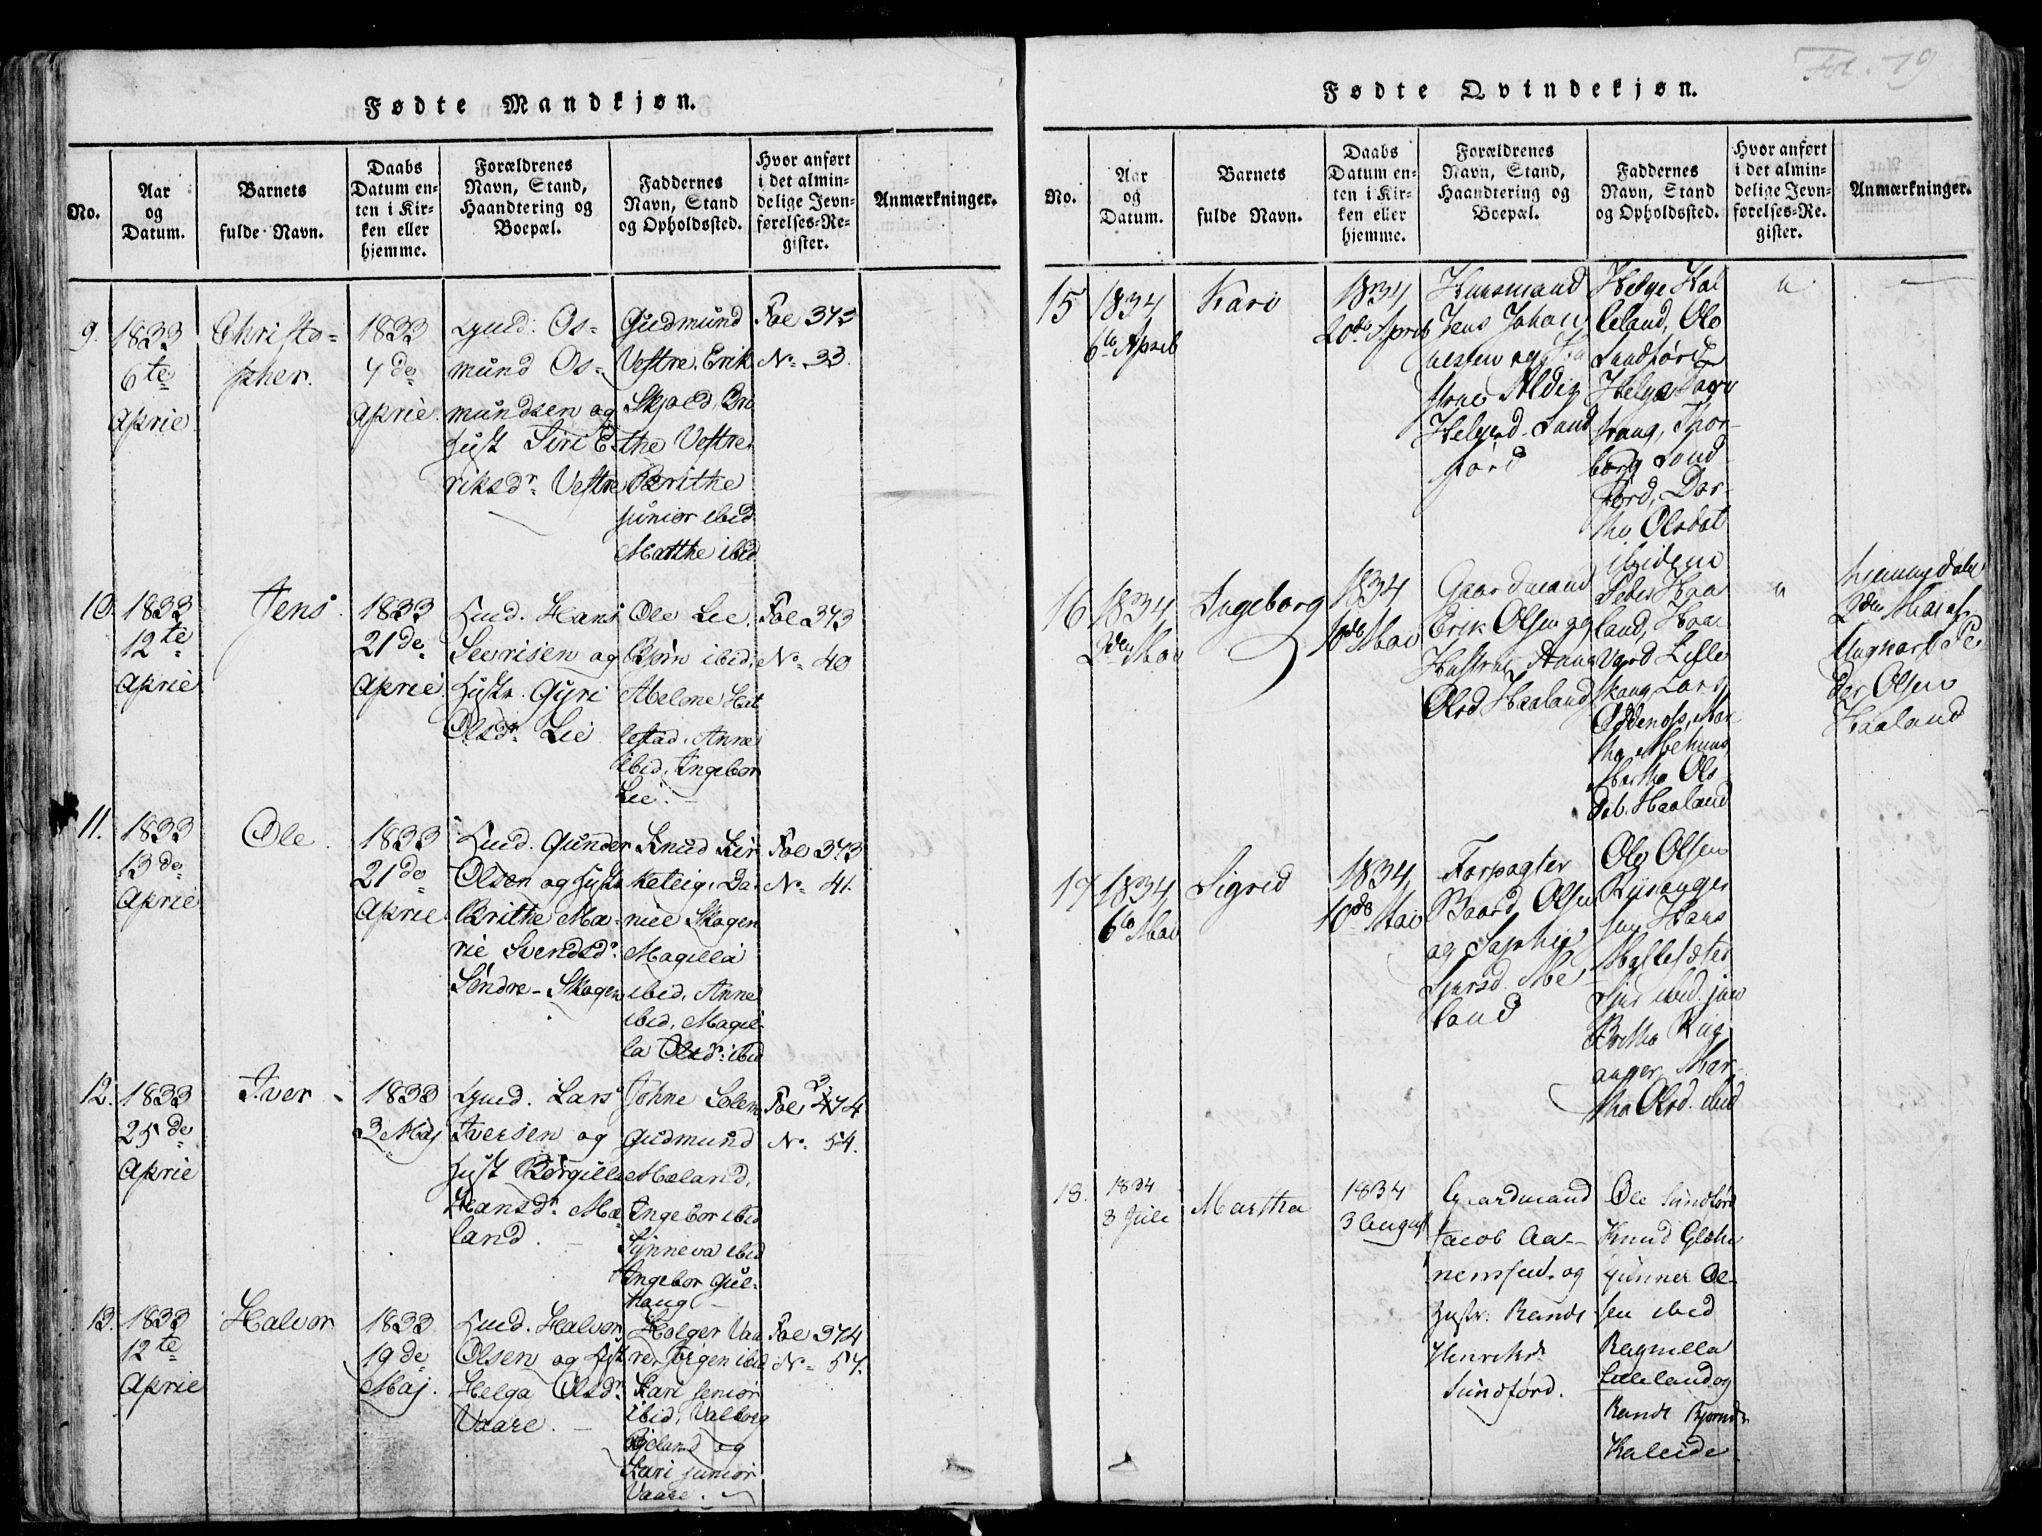 Fødte Mandkjøn.
No.
Aar
og
Datum.
Barnets
fulde Navn.
Daabs
Datum en-
ten i Kir-
ken eller
hjemme.
Forældrenes
Navn, Stand,
Haandtering og
Boepæl.
Faddernes
Navn, Stand
og Opholdssted.
Hvor anført
i det almin-
delige Jevn-
førelses-Re-
gister.
Anmærkninger.
9.
1833
6te
April
Christo-
pher.
1833
7de
April.
Os-
mund Os-
mundsen og
Hust. Siri E-
riksdr. Vestre
Gudmund
Vestre, Erik
Skjold, Bri
the Vestre,
Brithe
junior ibid
Marthe ibid
Fol 373
No. 33.
10.
1833
12te
April
Jens.
1833
21de
April
Hans
Sevrisen og
Hustr. Guri
Olsdr. Lie
Ole Lie,
Bjørn ibid,
Abelone Hel
lestad, Anne
ibid, Ingebor
Lie.
Fol 373
No. 40
11.
1833
13de
April
Ole.
1833
21de
April
Gunder
Olsen og Hustr
Brithe Ma-
rie Svendsdr.
Søndre-Skogen
Knud Kir
keteig, Da
niel Skogen
Magilla
ibid, Anne
ibid, Magil-
la Olsdr. ibid
Fol 373
No. 41.
12.
1833
25de
April
Iver
1833
3 Maj
Lars
Iversen og
Hust. Børgille
Hansdr. Mæ-
land.
Johne Solem
Gudmund
Mæland,
Ingebor ibid
Synneva ibid
Ingebor Gul-
haug
Fol 374
No. 54.
13.
1833
12te
April
Halvor
1833
19de
Maj.
Halvor
Olsen og Hust
Helga Olsdr.
Vaare.
Holger Vaa
re, ibid
Kari senior
ibid, Valborg
Bjeland og
Kari junior
Vaare.
Fol 374
No. 57.
Fol. 79
Fødte Qvindekjøn.
No.
Aar
og
Datum.
Barnets
fulde Navn.
Daabs
Datum en-
ten i Kir-
ken eller
hjemme.
Forældrenes
Navn, Stand,
Haandtering og
Boepæl.
Faddernes
Navn, Stand
og Opholdssted.
Hvor anført
i det almin-
delige Jevn-
førelses-Re-
gister.
Anmærkninger.
15
1834
6te April
Kari
1834
20de April
Huusmand
Jens Johan
nesen og Hu
strue
Helgesd. Sand
førd
Helge Hal
leland, Ole
Sandførd
Helga
Thor-
borg Sond
førd, Dor-
the Olsdat
ibidem
16
1834
2den Mai
Ingeborg
1834
10de Mai
Gaardmand
Erik Olsen og
Hustrue Anna
Olsd. Haaland
Peder Haa
land, Haa
vard Lille
skaug Lars
Oddenes, Mar
tha
Martha Ols
dat. Haaland
hjemmedøbt
2den Mai af
Ungkarl Pe
der Olsen
Haaland
17
1834
6te Mai
Sigrid
1834
10de Mai
Forpagter
Baard Olsen
og Sophie
Sjursd. Mæ
land
Ole Olsen
Rysanger
jun Hans
Sjur ibid. jun
Britha Rys
anger, Mar-
tha Olsd. ibid
18.
1834
3 Juli
Martha
1834
3 August
Gaardmand
Jacob Aa-
nensen og
Hustr: Randi
Henriksdr
Sundførd.
Ole Sundførd
Knud
Gunner Ol-
sen ibid
Ragnilla
Lilleland og
Randi Bjørnsdr
Haleide.